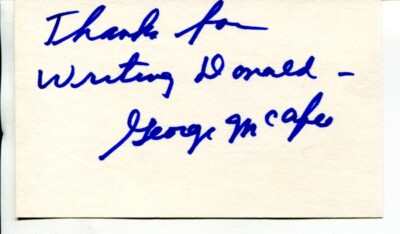 Thanks for
Writing Donald -
George McAfee